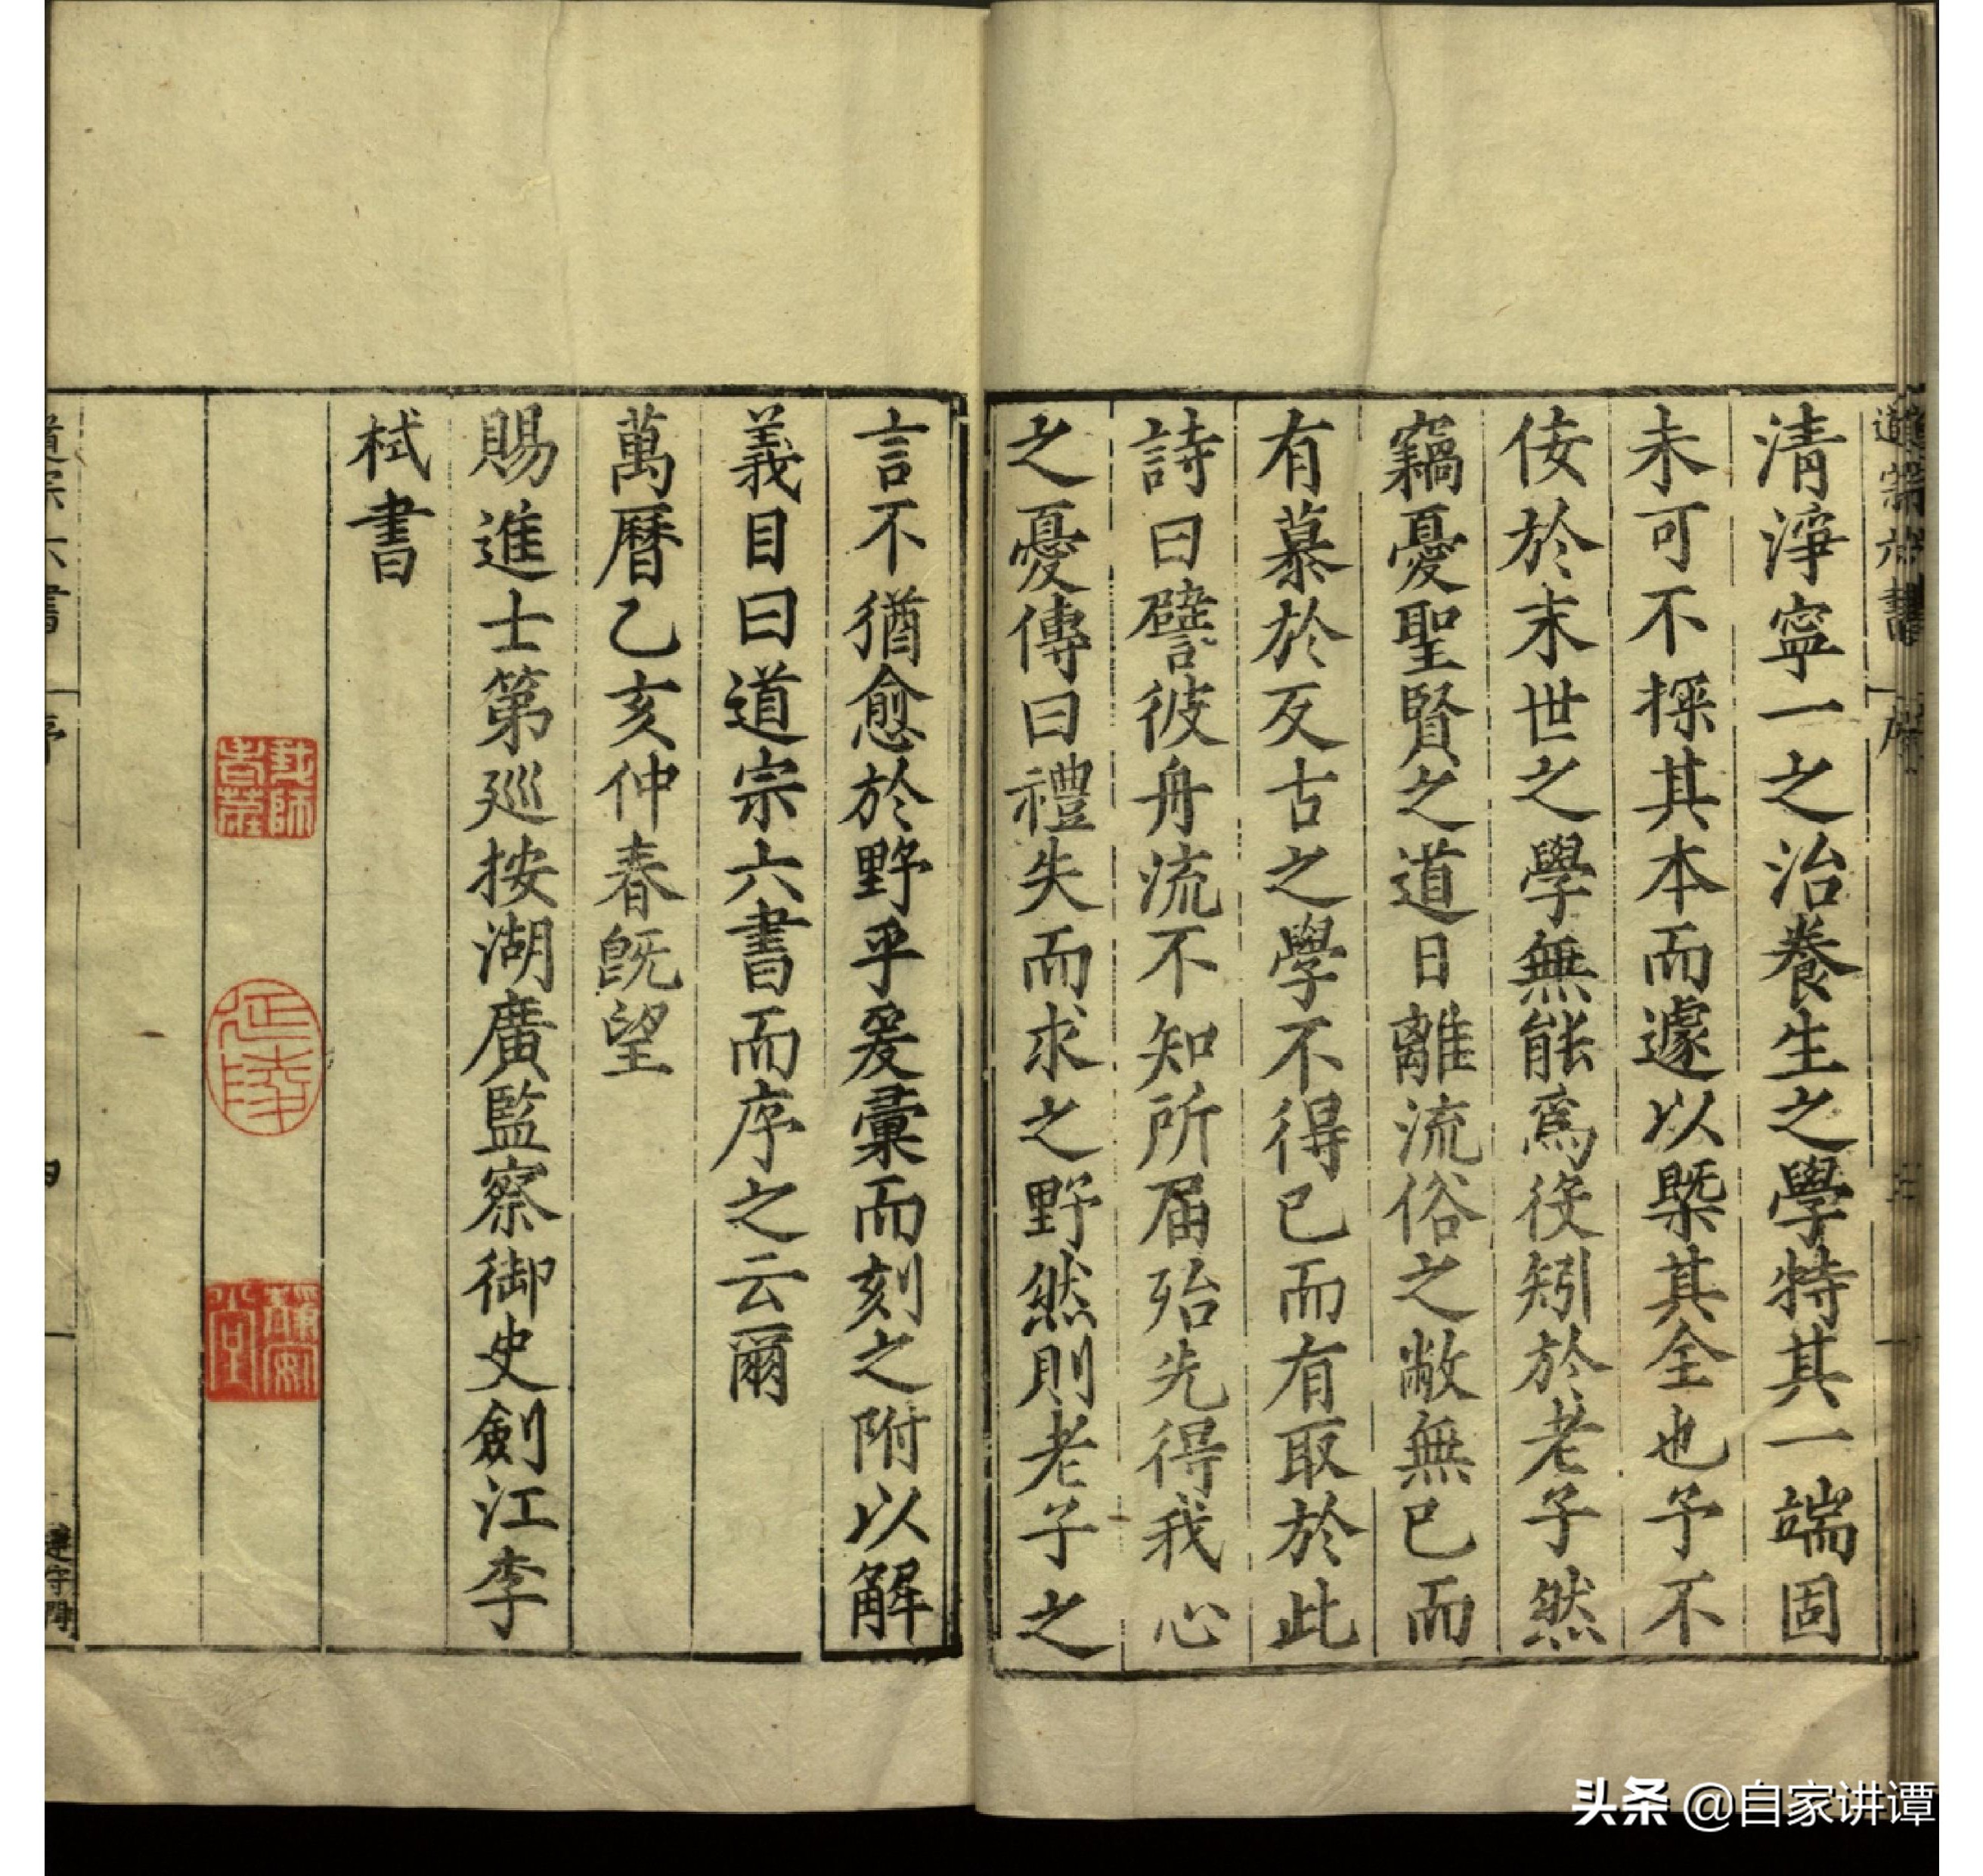 道宗六書 序
清淨寧一之治養生之學特其一端固
未可不探其本而遽以槩其全也予不
佞於末世之學無能爲役矧於老子然
竊憂聖賢之道日離流俗之敝無已而
有慕於反古之學不得已而有取於此
詩曰譬彼舟流不知所届殆先得我心
之憂傳曰禮失而求之野然則老子之
言不猶愈於野乎爰彙而刻之附以解
義目曰道宗六書而序之云爾
萬曆乙亥仲春旣望
賜進士第廵按湖廣監察御史劍江李
栻書
延陵
道宗六書 序
头条 @自家讲谭